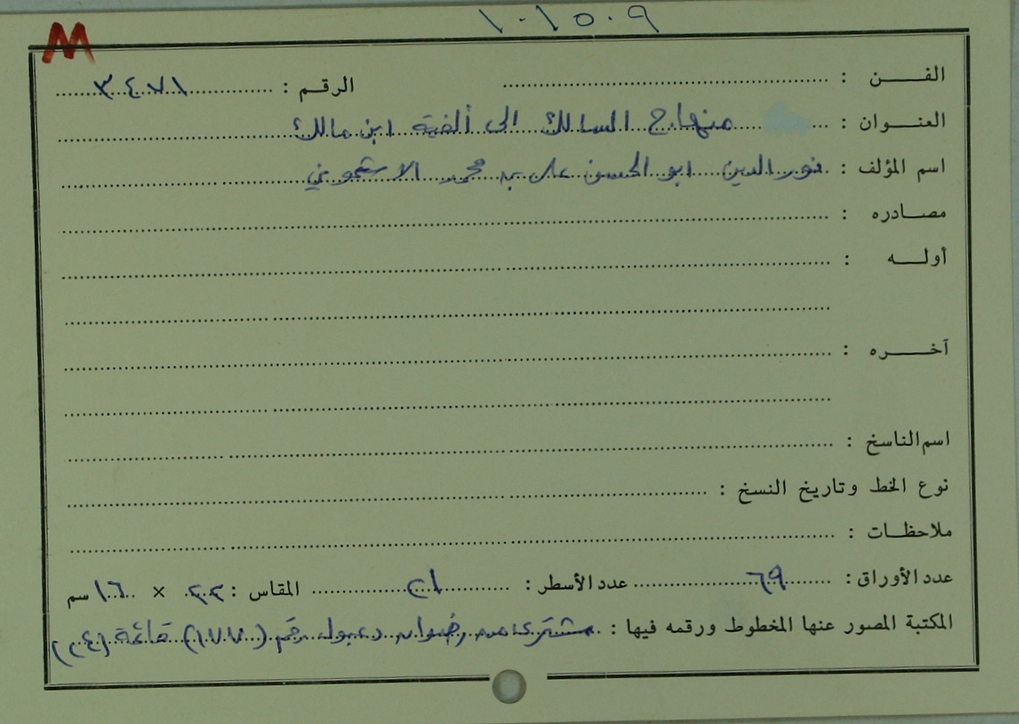 ١٠١٥٠٩
M
الفن :
الرقم : ٣٤٧١
العنوان : منهاج السالك الى ألفية ابن مالك
اسم المؤلف : نور الدين ابو الحسن علي بن محمد الاشموني
مصادره :
أوله :
آخره :
اسم الناسخ :
نوع الخط وتاريخ النسخ :
ملاحظات :
عدد الأوراق : ٦٩ عدد الأسطر : ٢١ المقاس : ٢٢ × ١٦ سم
المكتبة المصور عنها المخطوط ورقمه فيها : مشترى من رضوان دعبول رقم (١٧٧) قائمة (٢٤)